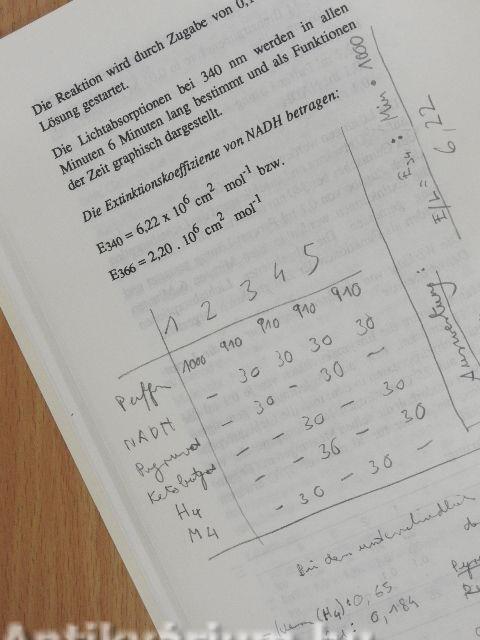 Die Reaktion wird durch Zugabe von 0,1
Lösung gestartet.
Die Lichtabsorptionen bei 340 nm werden in allen
Minuten 6 Minuten lang bestimmt und als Funktionen
der Zeit graphisch dargestellt.
Die Extinktionskoeffiziente von NADH betragen:
E340 = 6,22 x 10⁶ cm² mol⁻¹ bzw.
E366 = 2,20 . 10⁶ cm² mol⁻¹
1 2 3 4 5
Puffer 1000 910 910 910 910
NADH - 30 30 30 30
Pyruvat - 30 - 30 -
Ketobutyrat - - 30 - 30
H4 - - 30 - 30
M4 - 30 - 30 -
Auswertung:
E/h =
Min · 1000
6,22
Bei dem unterschiedlich
(H4): 0,65
0,184
Antikvárium.hu